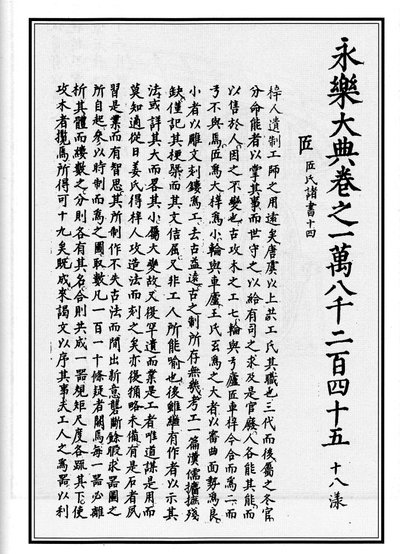 永樂大典卷之一萬八千二百四十五 十八漾
匠 匠氏諸書十四
梓人遺制工師之用遠矣唐虞以上共工氏其職也三代而後屬之冬官
分命能者以掌其事而世守之以給有司之求及是官廢人各能其能而
以售於人因之不變也古攻木之工七輪與弓廬匠車梓今合而為二而
弓不與焉匠為大梓為小輪與車廬王氏玄為之大者以審曲面勢為良
小者以雕文刻鏤為工去古益遠古之制所存無幾考工一篇漢儒攟摭殘
缺僅記其梗槩而其文佶屈又非工人所能喻也後雖繼有作者以示其
法或詳其大而畧其小屬大變故又復罕遺而業是工者唯道謀是用而
莫知適從日姜氏得梓人攻造法而刻之矣亦復觕略未備有景石者夙
習是業而有智思其所制作不失古法而間出新意礱斷餘暇求器圖之
所自起參以時制而為之圖取數凡一百一十條疑者闕焉每一器必離
析其體而縷數之分則各有其名合則共成一器規矩尺度各疏其下使
攻木者攬焉所得可十九矣既成來謁文以序其事夫工人之為器以利